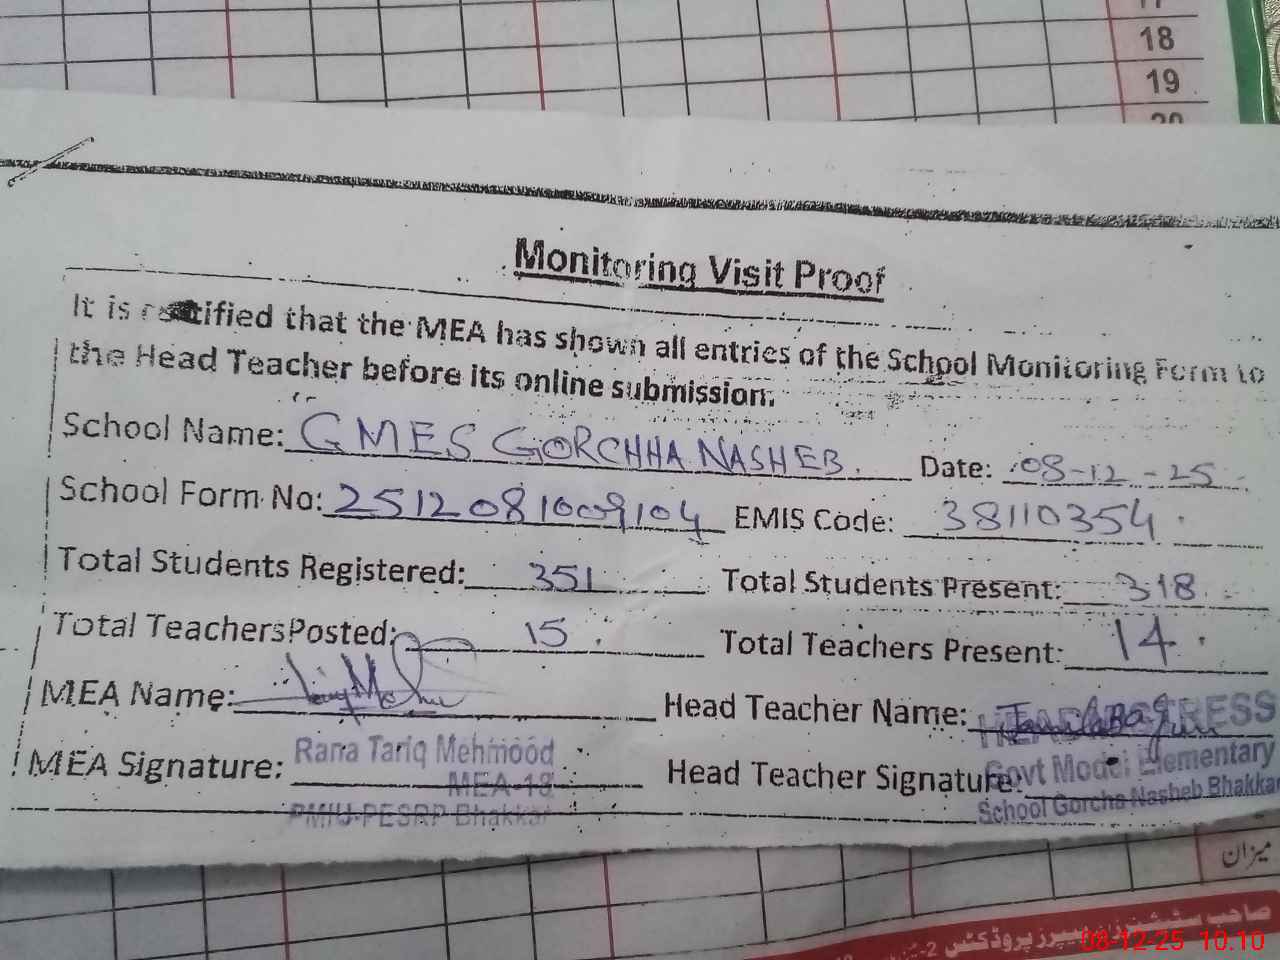 18
19
20
Monitoring Visit Proof
It is certified that the MEA has shown all entries of the School Monitoring Form to
the Head Teacher before its online submission.
School Name: GMES GORCHHA NASHEB. Date: 08-12-25
School Form No: 2512081009104 EMIS Code: 38110354
Total Students Registered: 351 Total Students Present: 318
Total TeachersPosted: 15 Total Teachers Present: 14
MEA Name: Head Teacher Name: HEADMISTRESS
MEA Signature: Rana Tariq Mehmood Head Teacher Signature: Govt Model Elementary
MEA-18 School Gorcha Nasheb Bhakkar
PMIU-PESRP Bhakkar
میزان
08-12-25 10.10